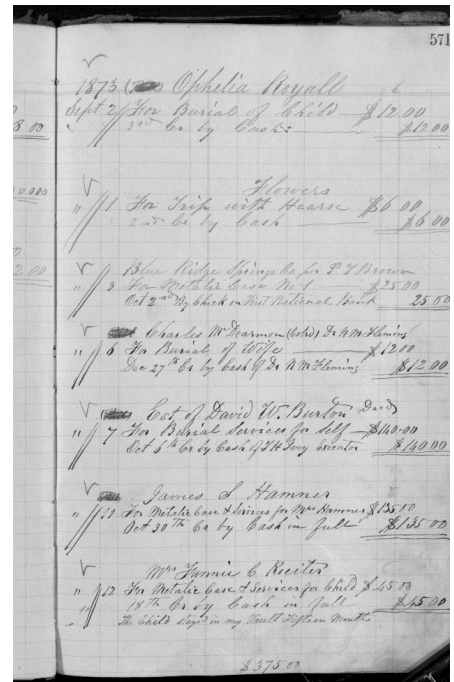 571
1873 Ophelia Royall
8.00
Sept 2 For Burial of Child $12.00
3rd Cr by Cash $12.00
Flowers
" 1 For Trip with Hearse $6.00
2nd Cr by Cash $6.00
2.00
Blue Ridge Springs Co per P F Brown
" 3 For Metalic Case No 1 $25.00
Oct 2nd By Check on First National Bank 25.00
Charles Mc Dearmon (Cold) Dr W M Fleming
" 6 For Burial of Wife $12.00
Dec 27th Cr by Cash of Dr W M Fleming $12.00
Est of David W. Burton Decd
" 7 For Burial Services for Self $140.00
Oct 6th Cr by Cash of Ivey Executor $140.00
James S Hamner
" 10 For Metalic Case & Services for Mrs Hamner $135.00
Oct 30th Cr by Cash in full $135.00
Mrs Fannie C
" 12 For Metalic Case & Services for Child $45.00
" 18th Cr by Cash in full $45.00
The Child in my Vault Fifteen Months
$375.00